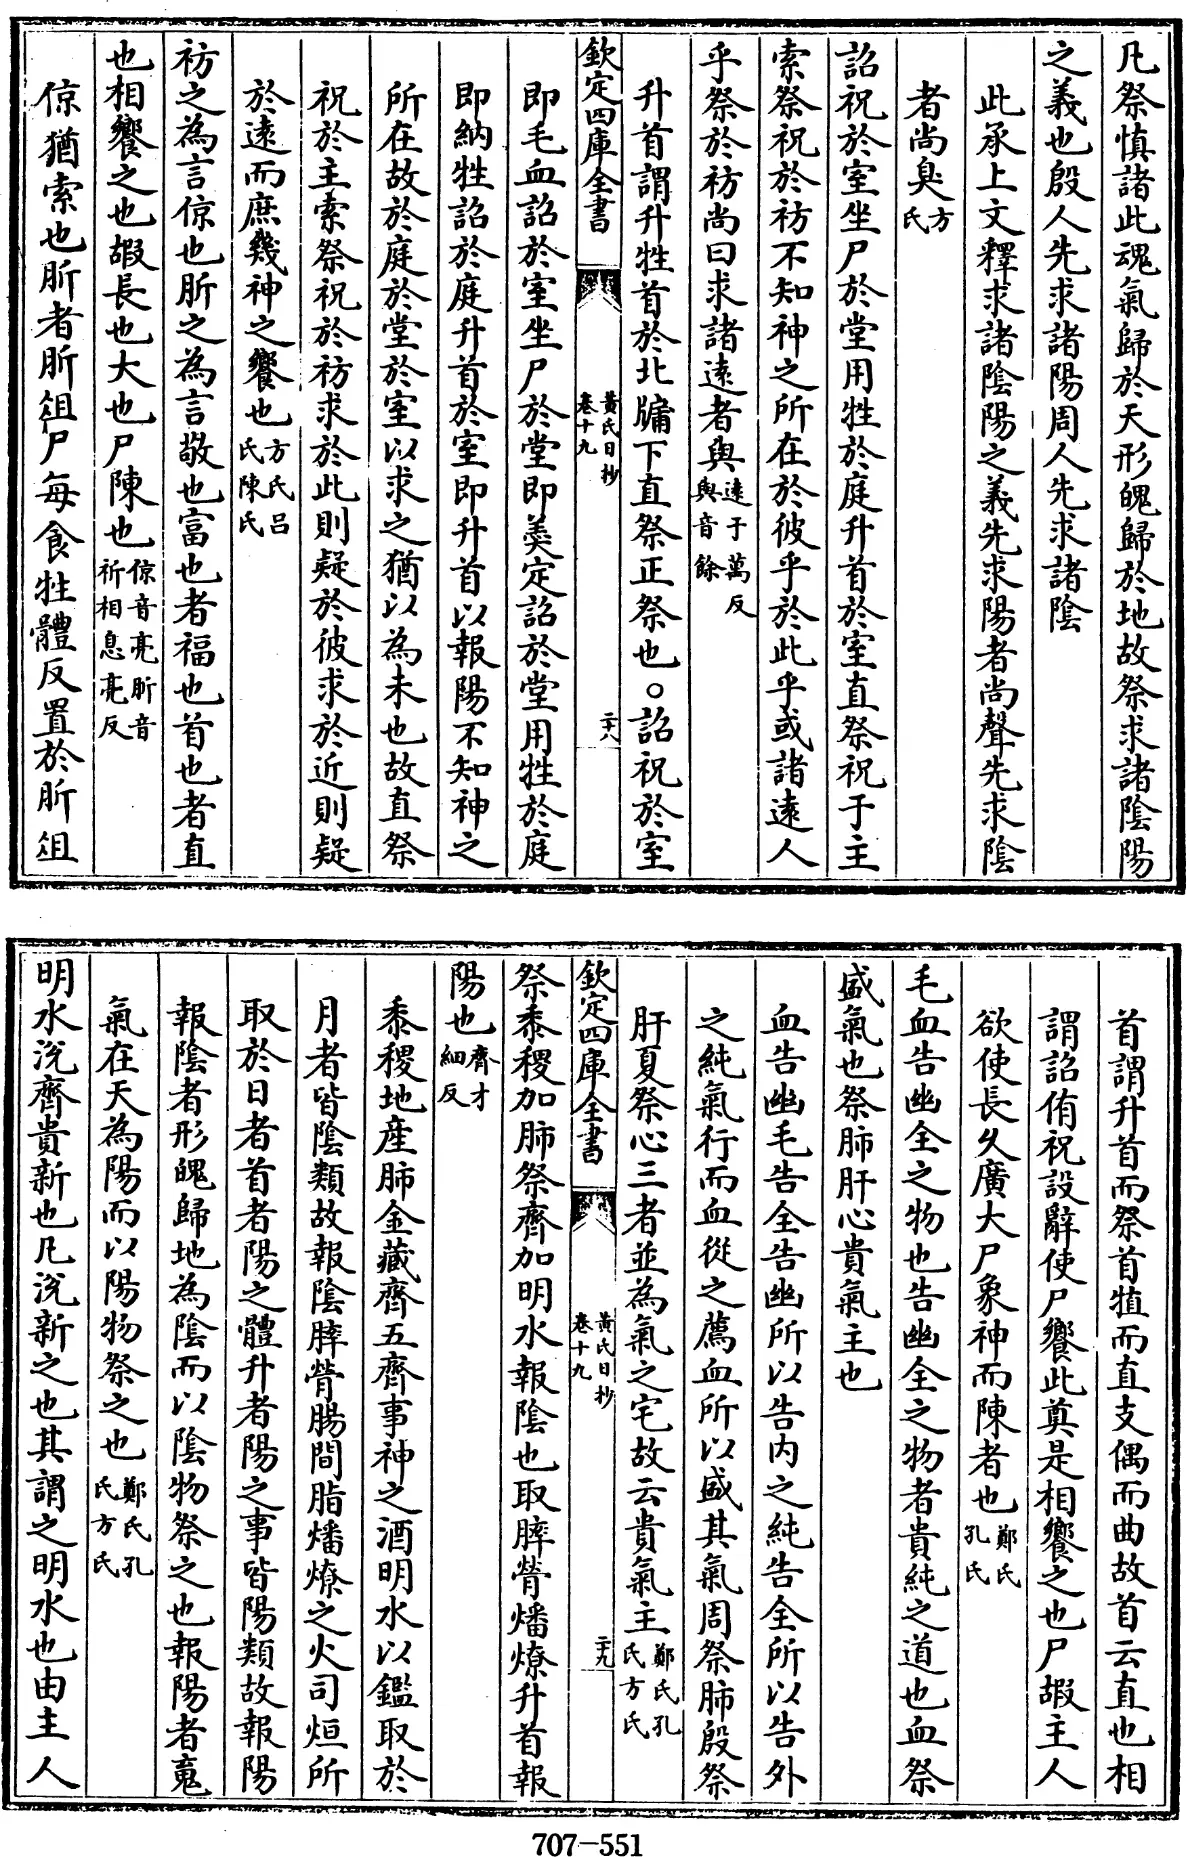 凡祭慎諸此魂氣歸於天形魄歸於地故祭求諸陰陽
之義也殷人先求諸陽周人先求諸陰
此承上文釋求諸陰陽之義先求陽者尚聲先求陰
者尚臭方氏
詔祝於室坐尸於堂用牲於庭升首於室直祭祝于主
索祭祝於祊不知神之所在於彼乎於此乎或諸遠人
乎祭於祊尚曰求諸遠者與遠于萬反與音餘
升首謂升牲首於北牖下直祭正祭也○詔祝於室
欽定四庫全書 黃氏日抄卷十九 二十八
即毛血詔於室坐尸於堂即羮定詔於堂用牲於庭
即納牲詔於庭升首於室即升首以報陽不知神之
所在故於庭於堂於室以求之猶以為未也故直祭
祝於主索祭祝於祊求於此則疑於彼求於近則疑
於遠而庶幾神之饗也方氏呂氏陳氏
祊之為言倞也肵之為言敬也富也者福也首也者直
也相饗之也嘏長也大也尸陳也倞音亮肵音祈相息亮反
倞猶索也肵者肵俎尸每食牲體反置於肵俎
首謂升首而祭首植而直支偶而曲故首云直也相
謂詔侑祝設辭使尸饗此奠是相饗之也尸嘏主人
欲使長久廣大尸象神而陳者也鄭氏孔氏
毛血告幽全之物也告幽全之物者貴純之道也血祭
盛氣也祭肺肝心貴氣主也
血告幽毛告全告幽所以告内之純告全所以告外
之純氣行而血從之薦血所以盛其氣周祭肺殷祭
肝夏祭心三者並為氣之宅故云貴氣主鄭氏孔氏方氏
欽定四庫全書 黃氏日抄卷十九 二十九
祭黍稷加肺祭齊加明水報陰也取膟膋燔燎升首報
陽也齊才細反
黍稷地產肺金藏齊五齊事神之酒明水以鑑取於
月者皆陰類故報陰膟膋腸間脂燔燎之火司烜所
取於日者首者陽之體升者陽之事皆陽類故報陽
報陰者形魄歸地為陰而以陰物祭之也報陽者䰟
氣在天為陽而以陽物祭之也鄭氏孔氏方氏
明水涗齊貴新也凡涗新之也其謂之明水也由主人
707-551